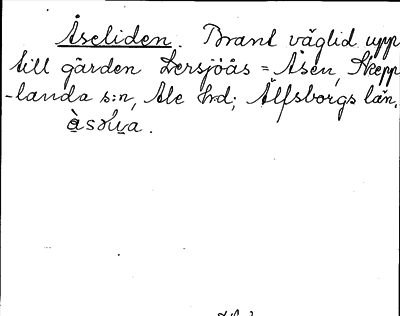 Åseliden. Brant väglid upp
till gården Lersjöås = Åsen, Skepp
-landa s:n, Ale hrd; Älfsborgs län.